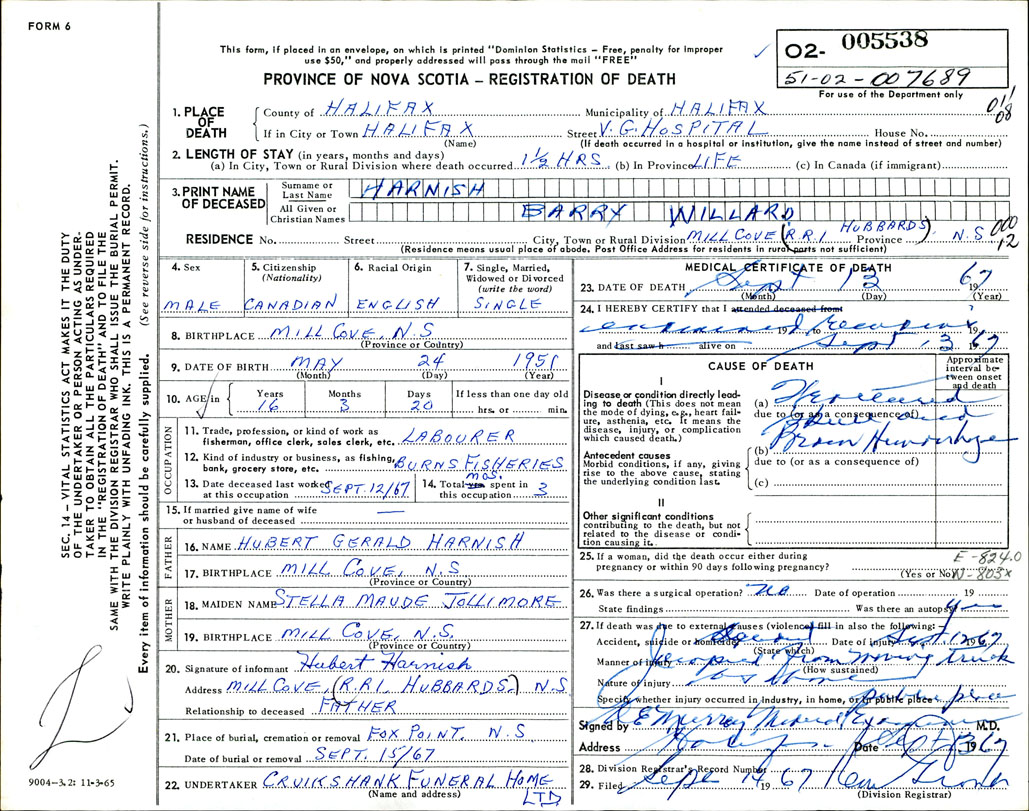 FORM 6
This form, if placed in an envelope, on which is printed "Dominion Statistics – Free, penalty for improper
use $50," and properly addressed will pass through the mail "FREE"
PROVINCE OF NOVA SCOTIA – REGISTRATION OF DEATH
02- 005538
51-02-007689
For use of the Department only
011
08
SEC. 14 – VITAL STATISTICS ACT MAKES IT THE DUTY
OF THE UNDERTAKER OR PERSON ACTING AS UNDER-
TAKER TO OBTAIN ALL THE PARTICULARS REQUIRED
IN THE "REGISTRATION OF DEATH" AND TO FILE THE
SAME WITH THE DIVISION REGISTRAR WHO SHALL ISSUE THE BURIAL PERMIT.
WRITE PLAINLY WITH UNFADING INK. THIS IS A PERMANENT RECORD.
Every item of information should be carefully supplied. (See reverse side for instructions.)
1. PLACE OF DEATH County of HALIFAX Municipality of HALIFAX
If in City or Town HALIFAX Street V. G. HOSPITAL House No.
(Name) (If death occurred in a hospital or institution, give the name instead of street and number)
2. LENGTH OF STAY (in years, months and days)
(a) In City, Town or Rural Division where death occurred 1½ HRS (b) In Province LIFE (c) In Canada (if immigrant)
3. PRINT NAME OF DECEASED Surname or Last Name HARNISH
All Given or Christian Names BARRY WILLARD
RESIDENCE No. Street City, Town or Rural Division MILL COVE (R.R.1 HUBBARDS) Province N.S
(Residence means usual place of abode. Post Office Address for residents in rural parts not sufficient)
000
12
4. Sex MALE
5. Citizenship (Nationality) CANADIAN
6. Racial Origin ENGLISH
7. Single, Married, Widowed or Divorced (write the word) SINGLE
8. BIRTHPLACE MILL COVE, N.S
(Province or Country)
9. DATE OF BIRTH MAY 24 1951
(Month) (Day) (Year)
10. AGE in Years 16 Months 3 Days 20 If less than one day old hrs. or min.
OCCUPATION
11. Trade, profession, or kind of work as
fisherman, office clerk, sales clerk, etc. LABOURER
12. Kind of industry or business, as fishing,
bank, grocery store, etc. BURNS FISHERIES
13. Date deceased last worked at this occupation SEPT. 12/67
14. Total yrs. mos. spent in this occupation 3
15. If married give name of wife
or husband of deceased —
FATHER
16. NAME HUBERT GERALD HARNISH
17. BIRTHPLACE MILL COVE, N.S
(Province or Country)
MOTHER
18. MAIDEN NAME STELLA MAUDE JOLLIMORE
19. BIRTHPLACE MILL COVE, N.S.
(Province or Country)
20. Signature of informant Hubert Harnish
Address MILL COVE, (R.R.1, HUBBARDS.) N.S
Relationship to deceased FATHER
21. Place of burial, cremation or removal FOX POINT. N.S
Date of burial or removal SEPT. 15/67
22. UNDERTAKER CRUIKSHANK FUNERAL HOME LTD
(Name and address)
9004-3.2: 11-3-65
MEDICAL CERTIFICATE OF DEATH
23. DATE OF DEATH Sept 13 1967
(Month) (Day) (Year)
24. I HEREBY CERTIFY that I attended deceased from
examined 19 to 19
and last saw h alive on Sept 13 1967
CAUSE OF DEATH
Approximate interval between onset and death
I
Disease or condition directly lead-
ing to death (This does not mean
the mode of dying, e.g., heart fail-
ure, asthenia, etc. It means the
disease, injury, or complication
which caused death.)
(a) Fractured
due to (or as a consequence of)
Skull and
Brain Hemorrhage
Antecedent causes
Morbid conditions, if any, giving
rise to the above cause, stating
the underlying condition last.
(b)
due to (or as a consequence of)
(c)
II
Other significant conditions
contributing to the death, but not
related to the disease or condi-
tion causing it.
25. If a woman, did the death occur either during
pregnancy or within 90 days following pregnancy?
(Yes or No)
E-824.0
N-803x
26. Was there a surgical operation? no Date of operation 19
State findings Was there an autopsy yes
27. If death was due to external causes (violence) fill in also the following:–
Accident, suicide or homicide Accident Date of injury Sept 12 1967
(State which)
Manner of injury Jumped from moving truck
(How sustained)
Nature of injury as above
Specify whether injury occurred in industry, in home, or in public place public place
Signed by R E Murray Medical Examiner M.D.
Address Date Sept 13 1967
28. Division Registrar's Record Number
29. Filed Sept 14 1967
(Division Registrar)